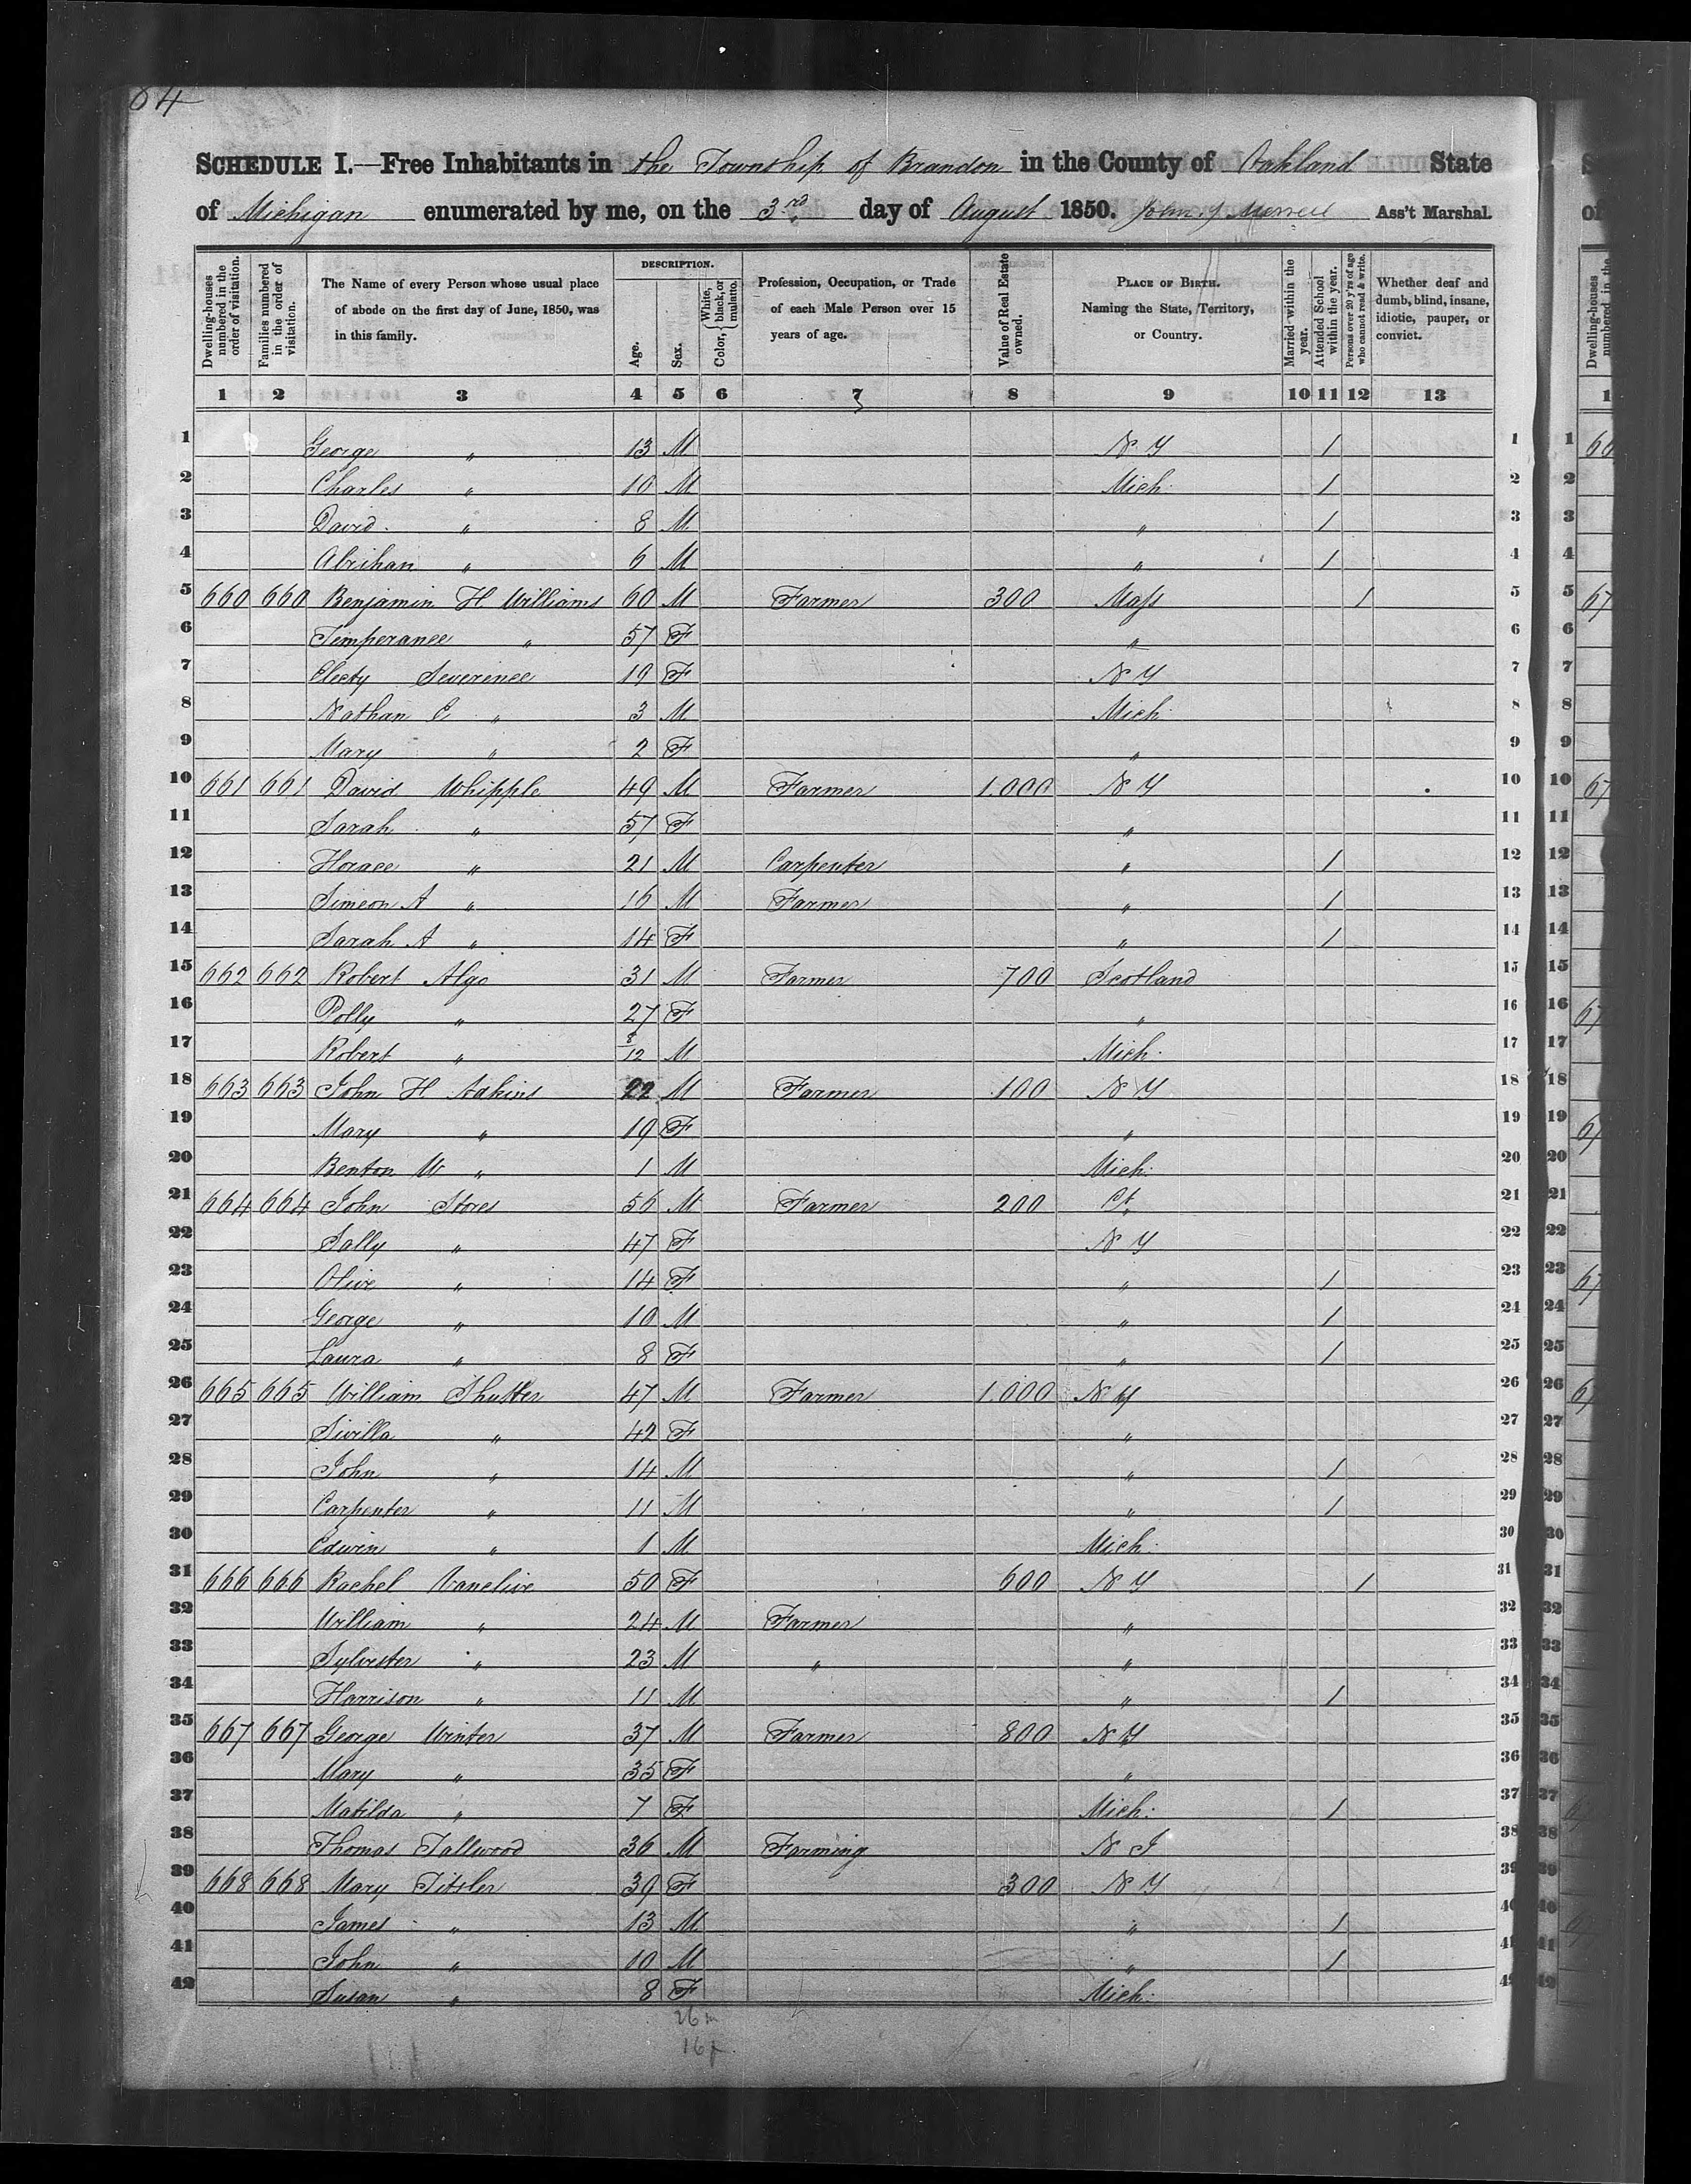 84
SCHEDULE I.—Free Inhabitants in the Township of Brandon in the County of Oakland State
of Michigan enumerated by me, on the 3rd day of August 1850. John Merrell Ass't Marshal.
Dwelling-houses numbered in the order of visitation. Families numbered in the order of visitation. The Name of every Person whose usual place of abode on the first day of June, 1850, was in this family. DESCRIPTION. Age. Sex. White, Color, black, or mulatto. Profession, Occupation, or Trade of each Male Person over 15 years of age. Value of Real Estate owned. PLACE OF BIRTH. Naming the State, Territory, or Country. Married within the year. Attended School within the year. Persons over 20 y'rs of age who cannot read & write. Whether deaf and dumb, blind, insane, idiotic, pauper, or convict.
1 2 3 4 5 6 7 8 9 10 11 12 13
1 George " 13 M N Y 1 1
2 Charles " 10 M Mich. 1 2
3 David " 8 M " 1 3
4 Abrihan " 6 M " 1 4
5 660 660 Benjamin H Williams 60 M Farmer 300 Mass 1 5
6 Temperance " 57 F " 6
7 Electy Severence 19 F N Y 7
8 Nathan E " 3 M Mich. 8
9 Mary " 2 F " 9
10 661 661 David Whipple 49 M Farmer 1.000 N Y 10
11 Sarah " 57 F " 11
12 Horace " 21 M Carpenter " 1 12
13 Simeon A " 16 M Farmer " 1 13
14 Sarah A " 14 F " 1 14
15 662 662 Robert Algo 31 M Farmer 700 Scotland 15
16 Polly " 27 F " 16
17 Robert " 8/12 M Mich. 17
18 663 663 John H Adkins 22 M Farmer 100 N Y 18
19 Mary " 19 F " 19
20 Benton W " 1 M Mich: 20
21 664 664 John Stores 56 M Farmer 200 Ct. 21
22 Sally " 47 F N Y 22
23 Olive " 14 F " 1 23
24 George " 10 M " 1 24
25 Laura " 8 F " 1 25
26 665 665 William Shutter 47 M Farmer 1.000 N Y 26
27 Sivilla " 42 F " 27
28 John " 14 M " 1 28
29 Carpenter " 11 M " 1 29
30 Edwin " 1 M Mich: 30
31 666 666 Rachel Vanclive 50 F 600 N Y 1 31
32 William " 24 M Farmer " 32
33 Sylvester " 23 M " " 33
34 Harrison " 11 M " 1 34
35 667 667 George Winter 37 M Farmer 800 N Y 35
36 Mary " 35 F " 36
37 Matilda " 7 F Mich: 1 37
38 Thomas Tallwood 36 M Farming N J 38
39 668 668 Mary Titsler 39 F 300 N Y 39
40 James " 13 M " 1 40
41 John " 10 M " 1 41
42 Susan " 8 F Mich: 42
26 m
16 f.